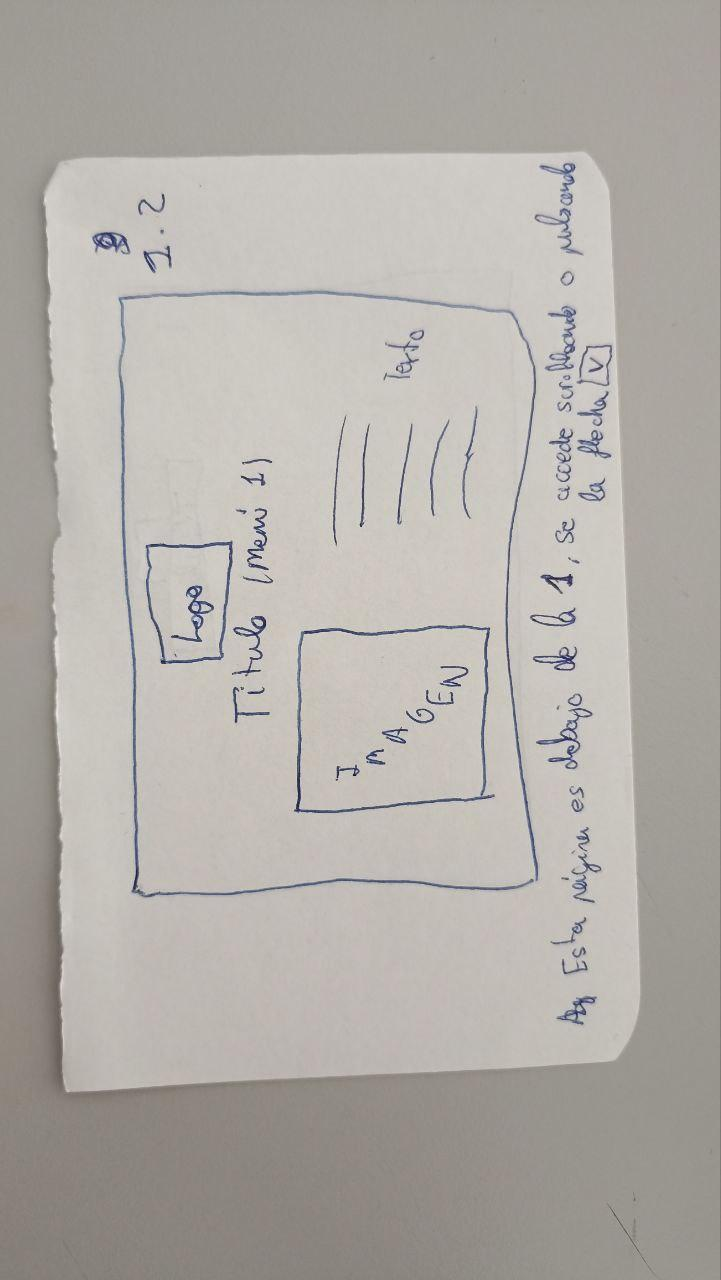 1.2
Logo
Título (Menú 1)
IMAGEN
Texto
Esta página es debajo de la 1, se accede scrollleando o pulsando
la flecha V